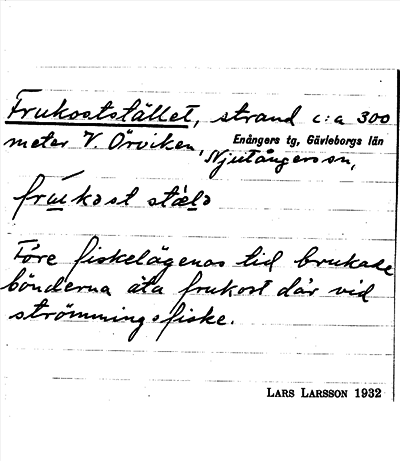 Frukoststället, strand c:a 300
meter V. Örviken, Enångers tg, Gävleborgs län
Njutångers sn,
frúkost stæ̀lə
Före fiskelägenas tid brukade
bönderna äta frukost där vid
strömmingsfiske.
LARS LARSSON 1932